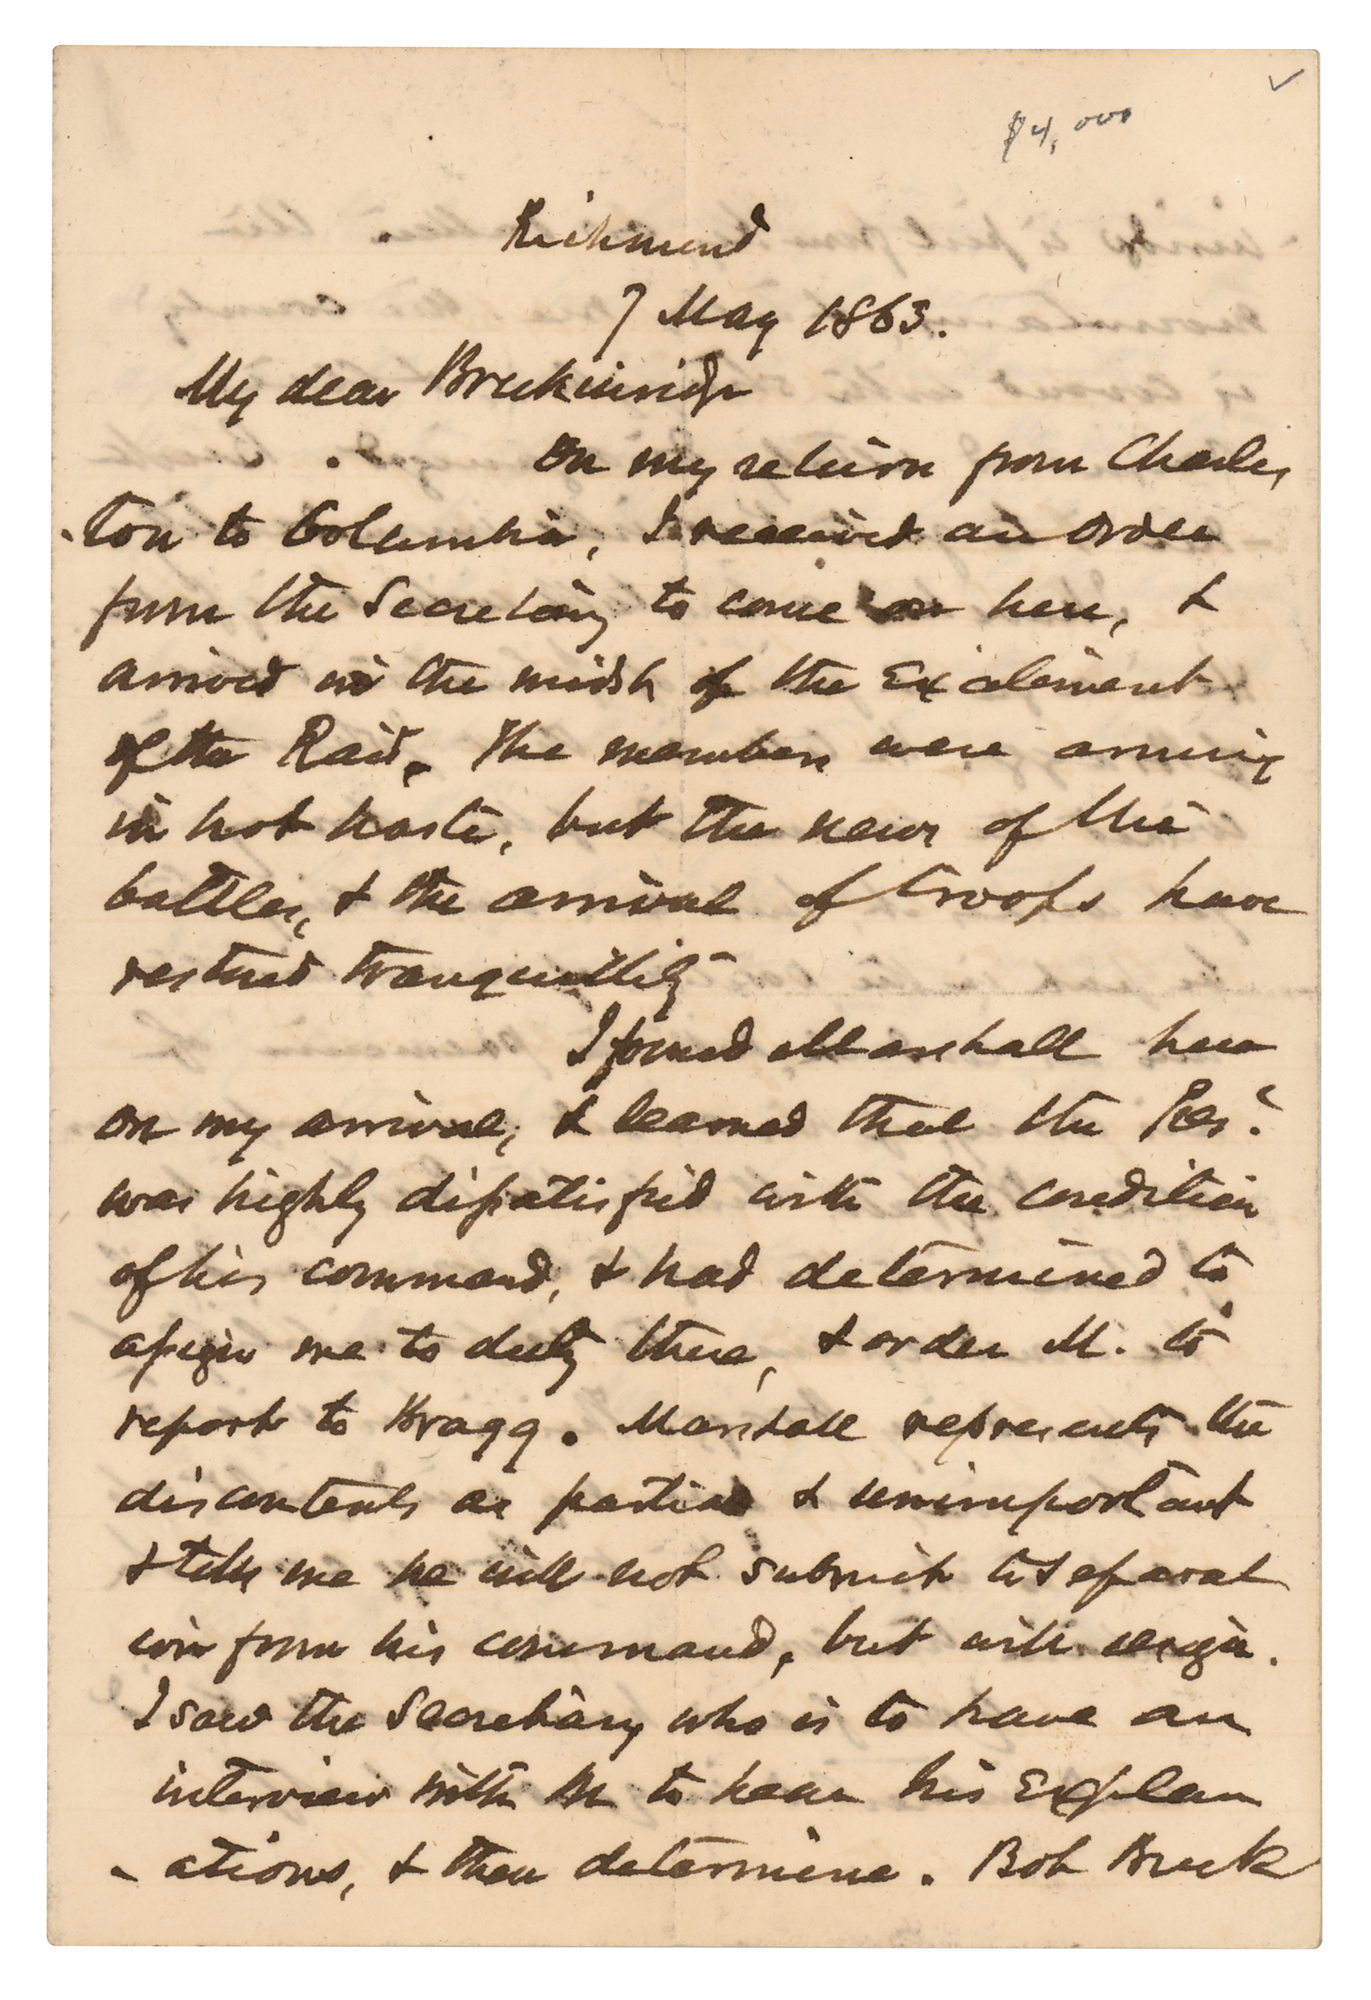 $4,000
Richmond
7 May 1863.
My dear Breckinridge
On my return from Charles
-ton to Columbia, I received an order
from the Secretary to come on here, &
arrived in the midst of the Excitement
of the Raid. The members were arming
in hot haste, but the news of the
battles, & the arrival of troops have
restored tranquillity
I found Marshall here
on my arrival, & learned that the Pres.t
was highly dissatisfied with the condition
of his command, & had determined to
assign me to duty there, & order M. to
report to Bragg. Marshall represents the
discontents as partial & unimportant
& tells me he will not submit to separat
ion from his command, but will resign.
I saw the Secretary who is to have an
interview with M to hear his Explan
- ations, & then determine. Bob Breck